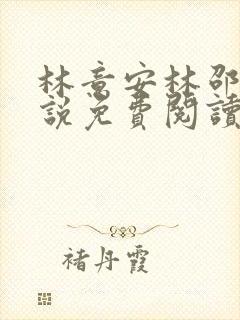 林意安林邵
說免費閱讀
褚丹霞